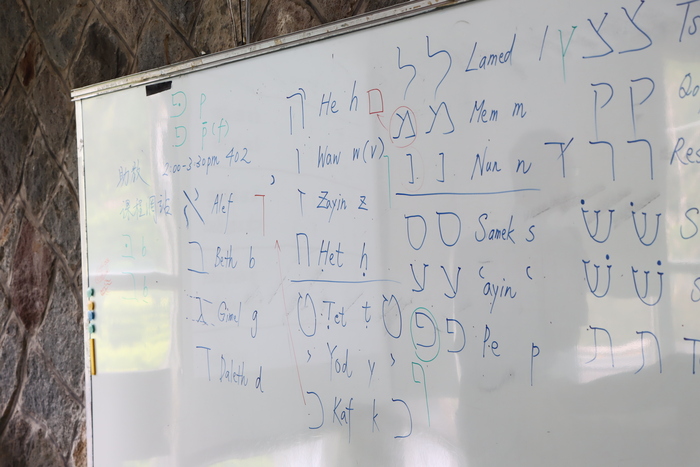 פּ p
פ p̄ (f)
2:00-3:30pm 402
א Alef
ב Beth b
ג Gimel g
ד Daleth d
בּ b
ב b
ה He h
ו Waw w(v)
ז Zayin z
ח Ḥet ḥ
ט Ṭet ṭ ט
י Yod y י
כ Kaf k כ
ל ל Lamed l
ם מ מ Mem m
נ נ Nun n
ס ס Samek s
ע ע ʿayin ʿ
פּ פ Pe p
ף
ץ צ צ Ts
ק ק Qo
ר ר Res
שׂ שׂ S
שׁ שׁ S
ת ת T